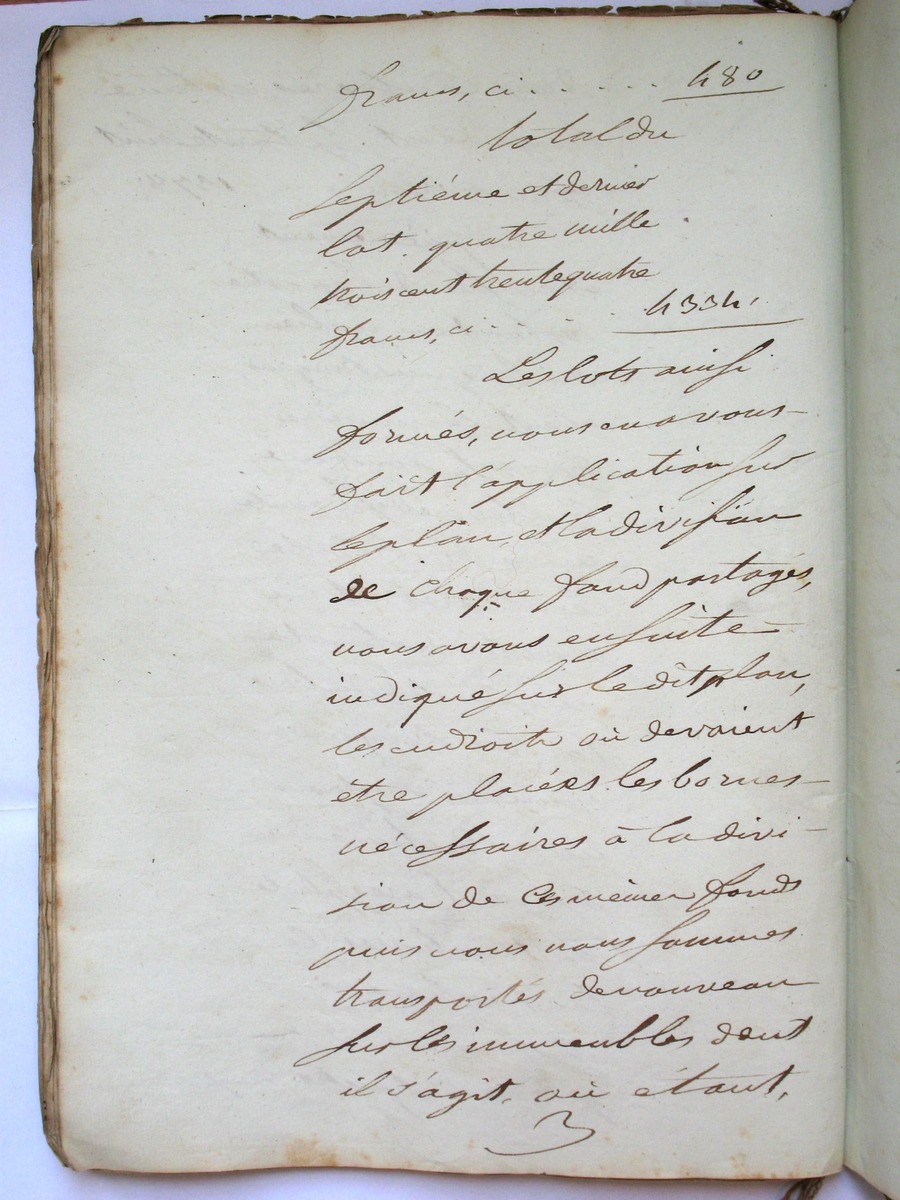 francs, ci . . . . . 480
total du
Septiéme et dernier
lot. quatre mille
trois cent trente quatre
francs, ci . . . 4334,
Les lots ainsi
formés, nous en avons
fait l'application sur
le plan, et la division
de chaque fond partagés,
nous avons ensuite
indiqué sur le dit plan,
les endroits où devaient
être placées les bornes
nécessaires à la divi-
sion de ces mêmes fonds
puis nous nous sommes
transportés de nouveau
sur les immeubles dont
il s'agit. où étant,